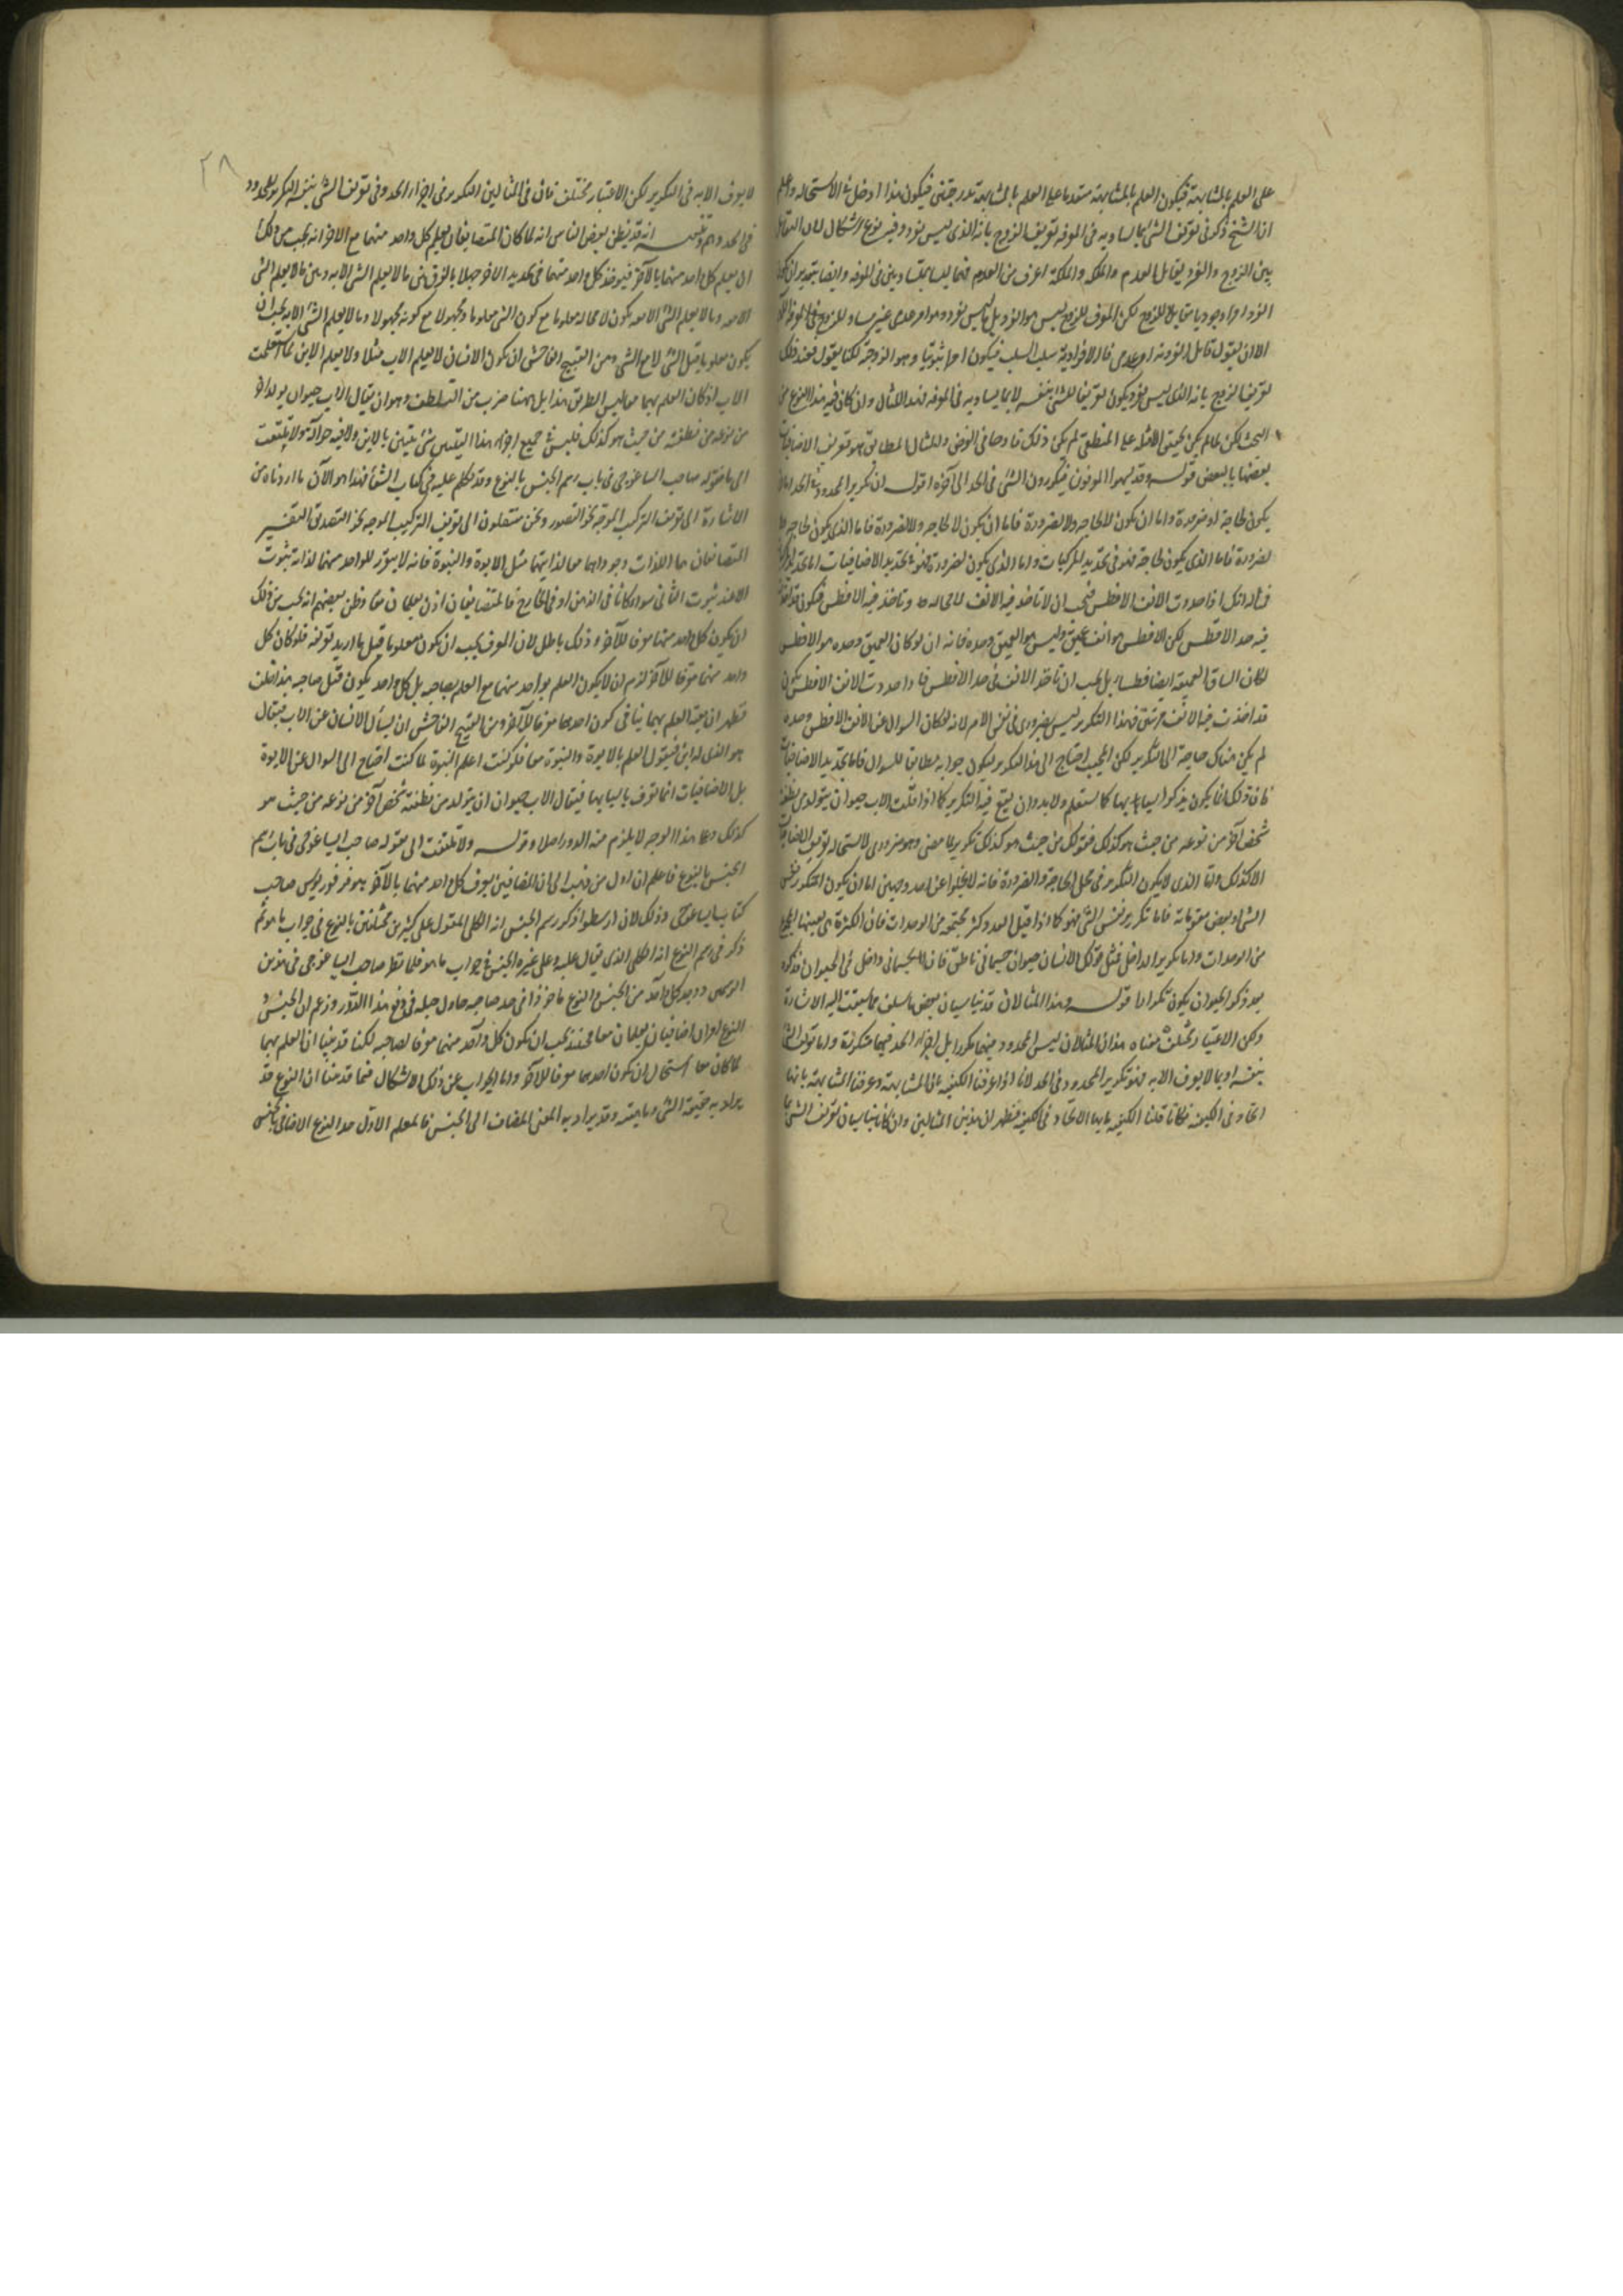 على العلم بالمشابهة فيكون العلم بالمشابهة متقدما على العلم بالمشابهة بمرتبتين فيكون هذا ادخل في الاستحالة واعلم
ان الشيخ ذكر في تعريف الشئ بما يساويه في المعرفة تعريف الزوج بانه الذي ليس بفرد وفيه نوع اشكال لان التقابل
بين الزوج والفرد تقابل العدم والملكة والملكة اعرف من العدم فهما ليسا بمتساويين في المعرفة وايضا بتقدير ان يكون
الفرد امرا وجوديا مقابلا للزوج لكن المعرف للزوج ليس هو الفرد بل ليس بفرد وهو امر عدمي غير مساو للزوج في المعرفة
الا ان يقول قائل الفردية امر عدمي فاللافردية سلب السلب فيكون امرا ثبوتيا وهو الزوجية لكنا نقول فعند ذلك
تعريف الزوج بانه الذي ليس بفرد يكون تعريفا للشئ بنفسه لا بما يساويه في المعرفة فهذا المثال وان كان فيه هذا النوع من
البحث لكن لما لم يكن تحقيق الامثلة على المنطقي لم يكن ذلك قادحا في الغرض والمثال المطابق هو تعريف الاضافيات
بعضها بالبعض قوله وقد يسهو المعرفون فيكررون الشئ في الحد الى آخره اقول ان تكرير المحدود في الحد اما ان
يكون لحاجة او ضرورة واما ان يكون لا لحاجة ولا لضرورة فاما ان يكون لا لحاجة ولا لضرورة فاما الذي يكون لحاجة
لضرورة فاما الذي يكون لحاجة فهو في تحديد المركبات واما الذي يكون لضرورة فهو في تحديد الاضافيات اما تحديد المركبات
فذلك انك اذا حددت الانف الافطس فيجب ان لا تأخذ فيه الانف لا محالة وتأخذ فيه الافطس فيكون قد اخذت
فيه حد الافطس لكن الافطس هو انف عميق وليس هو العميق وحده فانه ان لو كان العميق وحده هو الافطس
لكان الساق العميقة ايضا فطساء بل يجب ان تأخذ الانف في حد الافطس فاذا حددت الانف الافطس تكون
قد اخذت فيه الانف مرتين فهذا التكرير ليس بضروري في نفس الامر لانه لو كان السوال عن الانف الافطس وحده
لم يكن هناك حاجة الى التكرير لكن المجيب احتاج الى هذا التكرير ليكون جوابه مطابقا للسوال فاما تحديد الاضافيات
فان ذلك انما يكون بذكر اسبابها كما ستعلم ولا بد وان يقع فيه التكرير كما اذا قلت الاب حيوان يتولد من نطفته
شخص آخر من نوعه من حيث هو كذلك فقولك من حيث هو كذلك تكرير لما مضى وهو ضروري لاستحالة تعريف المضاف
الا كذلك واما الذي لا يكون التكرير في محل الحاجة والضرورة فانه لا يخلو عن احد وجهين اما ان يكون المتكرر نفس
الشئ او بعض مقوماته فاما تكرير نفس الشئ فهو كما اذا قيل العدد كثرة مجتمعة من الوحدات فان الكثرة هي بعينها المجتمع
من الوحدات واما تكرير الداخل فمثل قولك الانسان حيوان جسماني ناطق فان الجسماني داخل في الحيوان فذكره
بعد ذكر الحيوان يكون تكرارا قوله وهذا المثالان قد يناسبان بعض ما سلف مما سبقت اليه الاشارة
ولكن الاعتبار مختلف معناه هذان المثالان ليس المحدود فيهما مكررا بل اجزاء الحد فيهما متكررة واما تعريف الشئ
بنفسه او بما لا يعرف الا به فهو تكرير المحدود في الحد لانا اذا عرفنا الكيفية بانها المشابهة وعرفنا المشابهة بانها
اتحاد في الكيفية فكانا قلنا الكيفية ما بها الاتحاد في الكيفية فظهر ان هذين المثالين وان كانا يناسبان تعريف الشئ بما
لا يعرف الا به في التكرير لكن الاعتبار مختلف فان في المثالين التكرير في اجزاء الحد وفي تعريف الشئ بنفسه التكرير للمحدود
في الحد وهم وتنبيه انه قد يظن بعض الناس انه لما كان المتضايفان يعلم كل واحد منهما مع الآخر انه يجب من ذلك
ان يعلم كل واحد منهما بالآخر فيؤخذ كل واحد منهما في تحديد الآخر جهلا بالفرق بين ما لا يعلم الشئ الا به وبين ما لا يعلم الشئ
الا معه وما لا يعلم الشئ الا معه يكون لا محالة معلوما مع كون الشئ معلوما ومجهولا مع كونه مجهولا وما لا يعلم الشئ الا به يجب ان
يكون معلوما قبل الشئ لا مع الشئ ومن القبيح الفاحش ان يكون الانسان لا يعلم الاب مثلا ولا يعلم الابن
الاب لو كان العلم بهما معا ليس الطريق هذا بل ههنا ضرب من التلطف وهو ان يقال الاب حيوان يولد آخر
من نوعه من نطفته من حيث هو كذلك فليس في جميع اجزاء هذا التبيين شئ يتبين بالابن ولا فيه حوالة عليه ولا يلتفت
الى ما يقوله صاحب ايساغوجي في باب رسم الجنس بالنوع وقد تكلم عليه في كتاب الشفا فهذا هو الآن ما اردناه من
الاشارة الى تعريف التركيب الموجه نحو التصور ونحن منتقلون الى تعريف التركيب الموجه نحو التصديق التفسير
المتضايفان هما اللذان وجودهما معا لذاتيهما مثل الابوة والبنوة فانه لا يتقرر للواحد منهما لذاته ثبوت
الا عند ثبوت الثاني سواء كانا في الذهن او في الخارج فالمتضايفان اذن يعلمان معا وظن بعضهم انه يجب من ذلك
ان يكون كل واحد منهما معرفا للآخر وذلك باطل لان المعرف يجب ان يكون معلوما قبل ما اريد تعريفه فلو كان كل
واحد منهما معرفا للآخر لزم ان لا يكون العلم بواحد منهما مع العلم بصاحبه بل كل واحد يكون قبل صاحبه هذا خلف
فظهر ان معية العلم بهما ينافي كون احدهما معرفا للآخر ومن القبيح الفاحش ان يسأل الانسان عن الاب فيقال
هو الذي له ابن فيقول العلم بالابوة والبنوة معا فلو كنت اعلم البنوة لما كنت احتاج الى السوال عن الابوة
بل الاضافيات انما تعرف باسبابها فيقال الاب حيوان يتولد من نطفته شخص آخر من نوعه من حيث هو
كذلك وعلى هذا الوجه لا يلزم منه الدور اصلا وقوله ولا تلتفت الى ما يقوله صاحب ايساغوجي في باب رسم
الجنس بالنوع فاعلم ان اول من ذهب الى ان المضافين يعرف كل واحد منهما بالآخر هو فرفوريوس صاحب
كتاب ايساغوجي وذلك لان ارسطو ذكر رسم الجنس انه الكلي المقول على كثيرين مختلفين بالنوع في جواب ما هو ثم
ذكر في رسم النوع انه الكلي الذي يقال عليه وعلى غيره الجنس في جواب ما هو فلما نظر صاحب ايساغوجي في هذين
الرسمين ووجد كل واحد من الجنس والنوع مأخوذا في حد صاحبه حاول حيلة في دفع هذا الدور وزعم ان الجنس و
النوع امران اضافيان يعلمان معا فحينئذ يجب ان يكون كل واحد منهما معرفا لصاحبه لكنا قد بينا ان العلم بهما
لما كان معا استحال ان يكون احدهما معرفا للآخر واما الجواب عن ذلك الاشكال فما قد بينا ان النوع قد
يراد به حقيقة الشئ وماهيته وقد يراد به المعنى المضاف الى الجنس فالمعلم الاول حد النوع الاضافي بالجنس